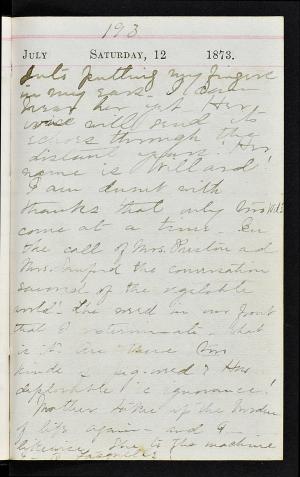 193
JULY SATURDAY, 12 1873.
into putting my fingers
in my ears. I can
hear her yet. Her
voice will send its
echoes through the
distant years. Her
name is Willard!
I am dumb with
thanks that only
come at a time. In
the call of Mrs. Preston and
Mrs. Sanford the conversation
savored of the vegetable
world. The weed in our front
that I exterminate. What
is it? Are there two
kinds
deplorable is ignorance!
Mother takes up the burden
of life again and I
likewise. She to the machine